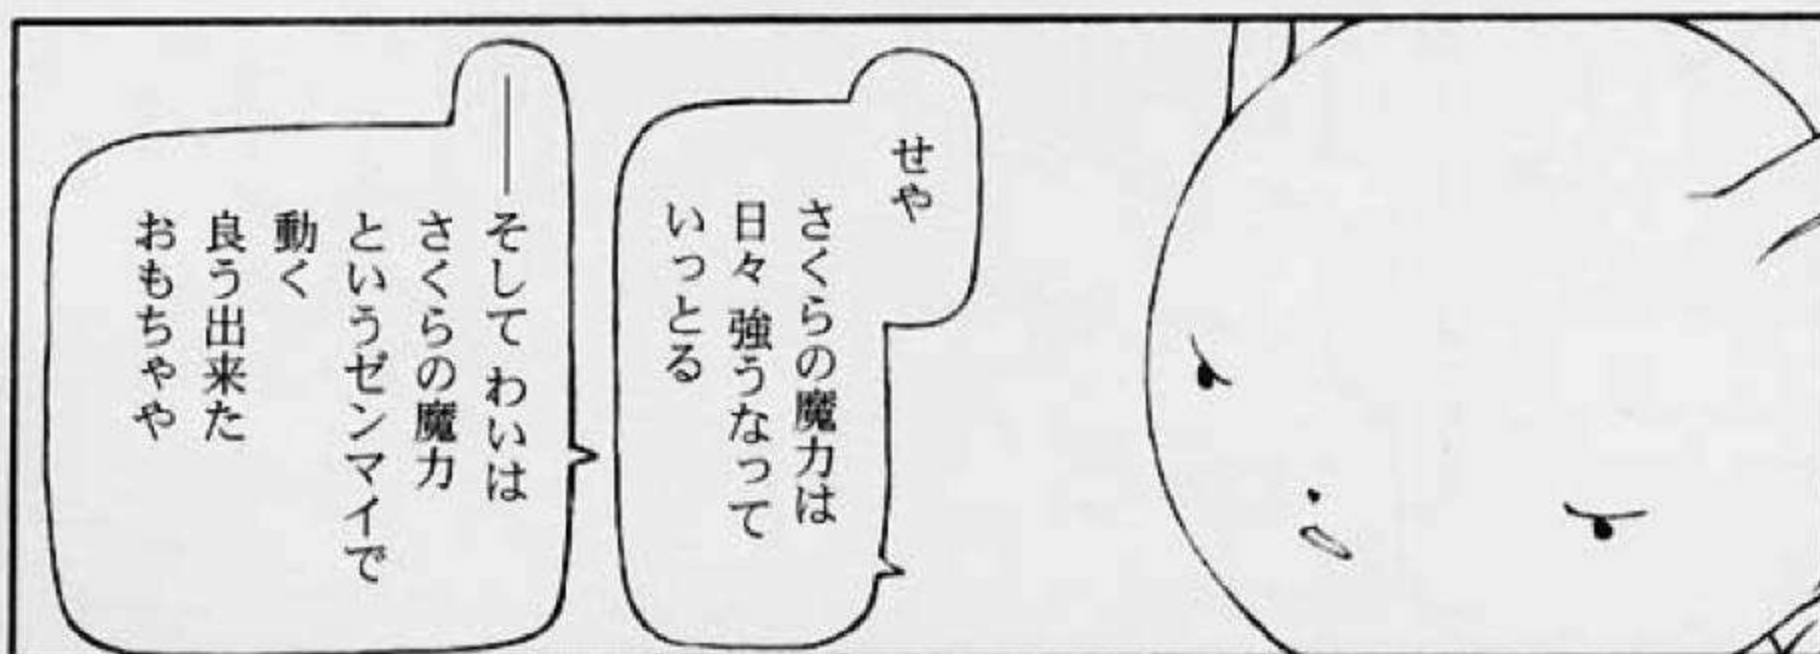 せや
さくらの魔力は
日々 強うなって
いっとる
――そして わいは
さくらの魔力
というゼンマイで
動く
良う出来た
おもちゃや